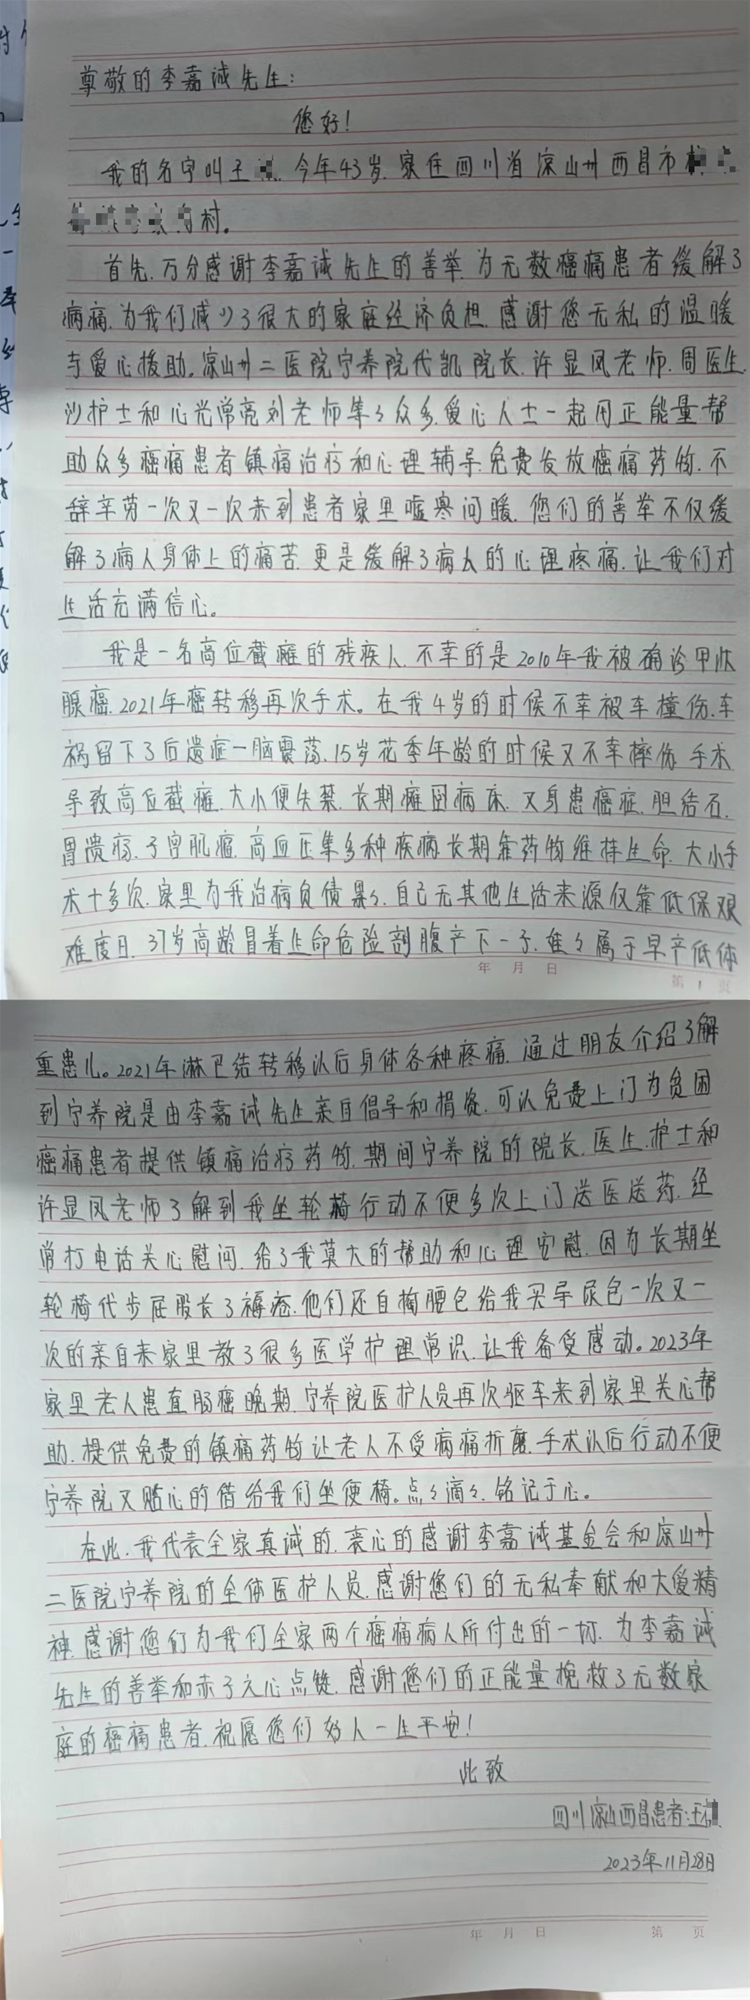 尊敬的李嘉诚先生:
您好!
我的名字叫王 今年43岁.家住四川省凉山州西昌市
村。
首先.万分感谢李嘉诚先生的善举.为无数癌痛患者缓解了
病痛.为我们减少了很大的家庭经济负担.感谢您无私的温暖
与爱心援助。凉山州二医院宁养院代凯院长.许显凤老师.周医生.
沙护士和心光常亮刘老师等等众多.爱心人士一起用正能量帮
助众多癌痛患者镇痛治疗和心理辅导.免费发放癌痛药物.不
辞辛劳一次又一次来到患者家里嘘寒问暖.您们的善举不仅缓
解了病人身体上的痛苦.更是缓解了病人的心理疼痛.让我们对
生活充满信心。
我是一名高位截瘫的残疾人.不幸的是2010年我被确诊甲状
腺癌.2021年癌转移再次手术。在我4岁的时候不幸被车撞伤.车
祸留下了后遗症一脑震荡.15岁花季年龄的时候又不幸摔伤.手术
导致高位截瘫.大小便失禁.长期瘫卧病床.又身患癌症.胆结石.
胃溃疡.子宫肌瘤.高血压集多种疾病长期靠药物维持生命.大小手
术十多次.家里为我治病负债累々.自己无其他生活来源仅靠低保艰
难度日.37岁高龄冒着生命危险剖腹产下一子.难々属于早产低体
年 月 日 第 1 页
重患儿。2021年淋巴结转移以后身体各种疼痛.通过朋友介绍了解
到宁养院是由李嘉诚先生亲自倡导和捐资.可以免费上门为贫困
癌痛患者提供镇痛治疗药物.期间宁养院的院长.医生.护士和
许显凤老师了解到我坐轮椅行动不便多次上门送医送药.经
常打电话关心慰问.给了我莫大的帮助和心理安慰.因为长期坐
轮椅代步屁股长了褥疮.他们还自掏腰包给我买导尿包一次又一
次的亲自来家里教了很多医学护理常识.让我备受感动。2023年
家里老人患直肠癌晚期.宁养院医护人员再次驱车来到家里关心帮
助.提供免费的镇痛药物让老人不受病痛折磨.手术以后行动不便
宁养院又贴心的借给我们坐便椅。点々滴々.铭记于心。
在此.我代表全家真诚的.衷心的感谢李嘉诚基金会和凉山州
二医院宁养院的全体医护人员.感谢您们的无私奉献和大爱精
神.感谢您们为我们全家两个癌痛病人所付出的一切.为李嘉诚
先生的善举和赤子之心点赞.感谢您们的正能量挽救了无数家
庭的癌痛患者.祝愿您们好人一生平安!
此致
四川凉山西昌患者:王
2023年11月28日
年 月 日 第 页